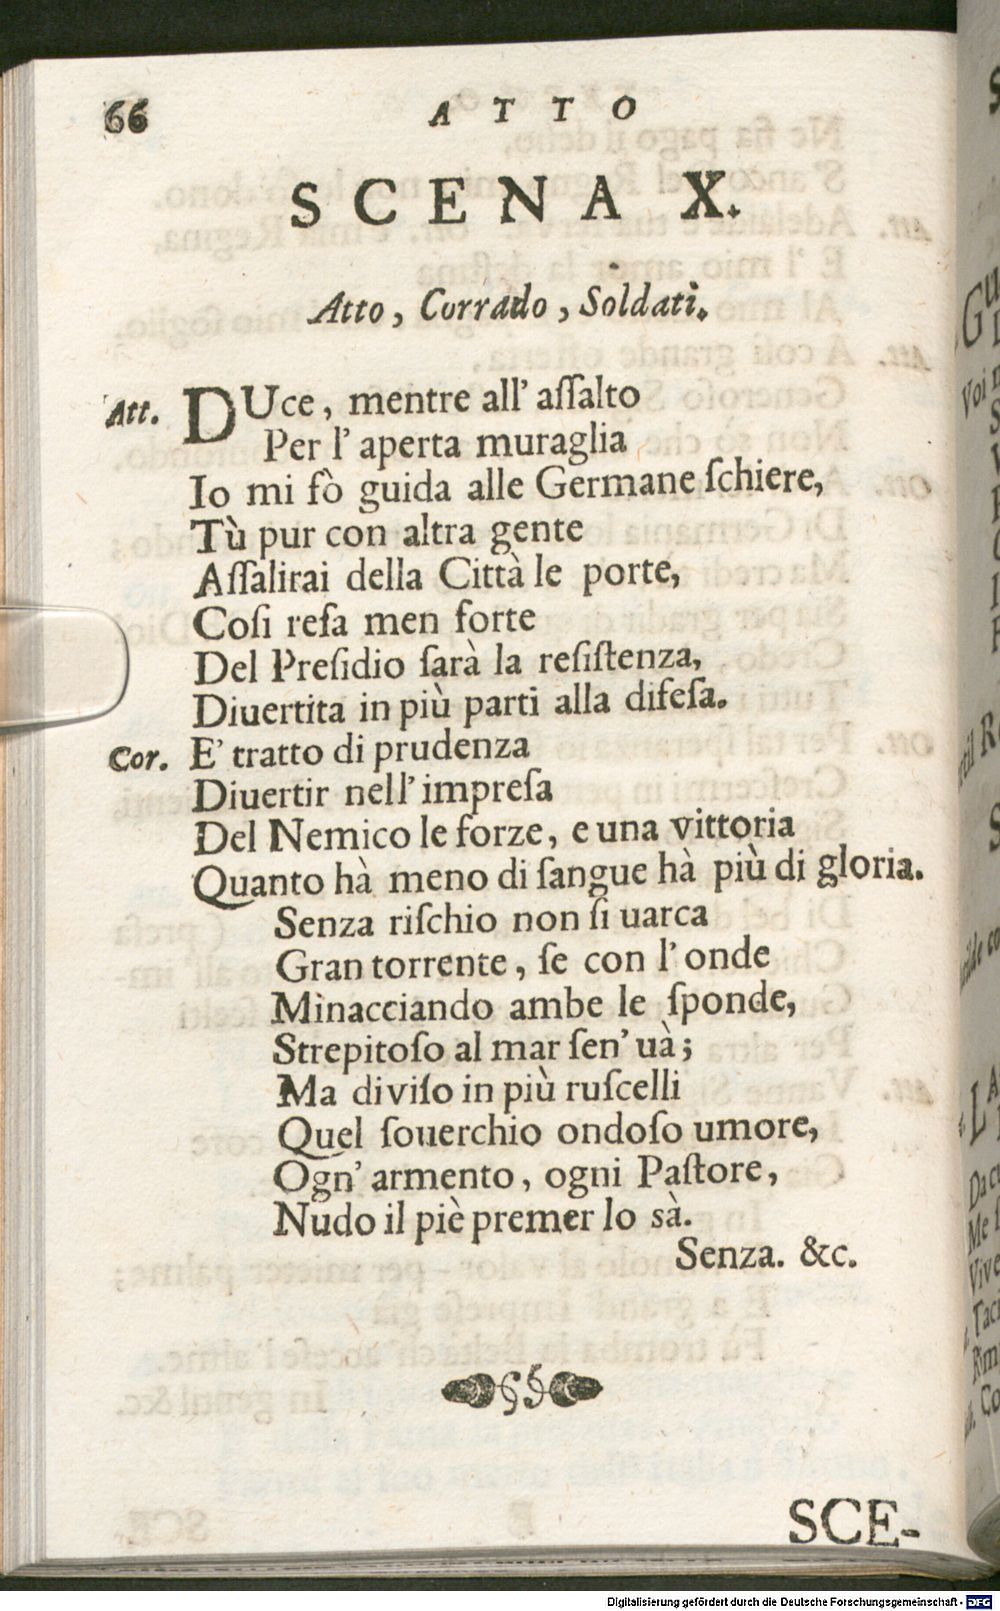 66 ATTO
SCENA X.
Atto, Corrado, Soldati.
Att. DUce, mentre all' aſſalto
Per l' aperta muraglia
Io mi fò guida alle Germane ſchiere,
Tù pur con altra gente
Aſſalirai della Città le porte,
Coſi reſa men forte
Del Preſidio ſarà la reſiſtenza,
Diuertita in più parti alla difeſa.
Cor. E' tratto di prudenza
Diuertir nell' impreſa
Del Nemico le forze, e una vittoria
Quanto hà meno di ſangue hà più di gloria.
Senza riſchio non ſi uarca
Gran torrente, ſe con l' onde
Minacciando ambe le ſponde,
Strepitoſo al mar ſen' uà;
Ma diviſo in più ruſcelli
Quel ſouerchio ondoſo umore,
Ogn' armento, ogni Paſtore,
Nudo il piè premer lo sà.
Senza. &c.
SCE-
Digitalisierung gefördert durch die Deutsche Forschungsgemeinschaft - DFG